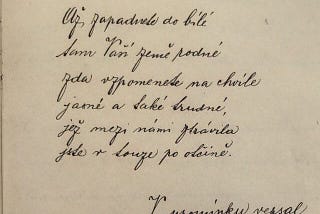 Až zapadnete do bílé
tam Vaší země rodné
zda vzpomenete na chvíle
jasné a také trudné,
jež mezi námi ztrávila
jste v touze po otčině.
V upomínku vepsal